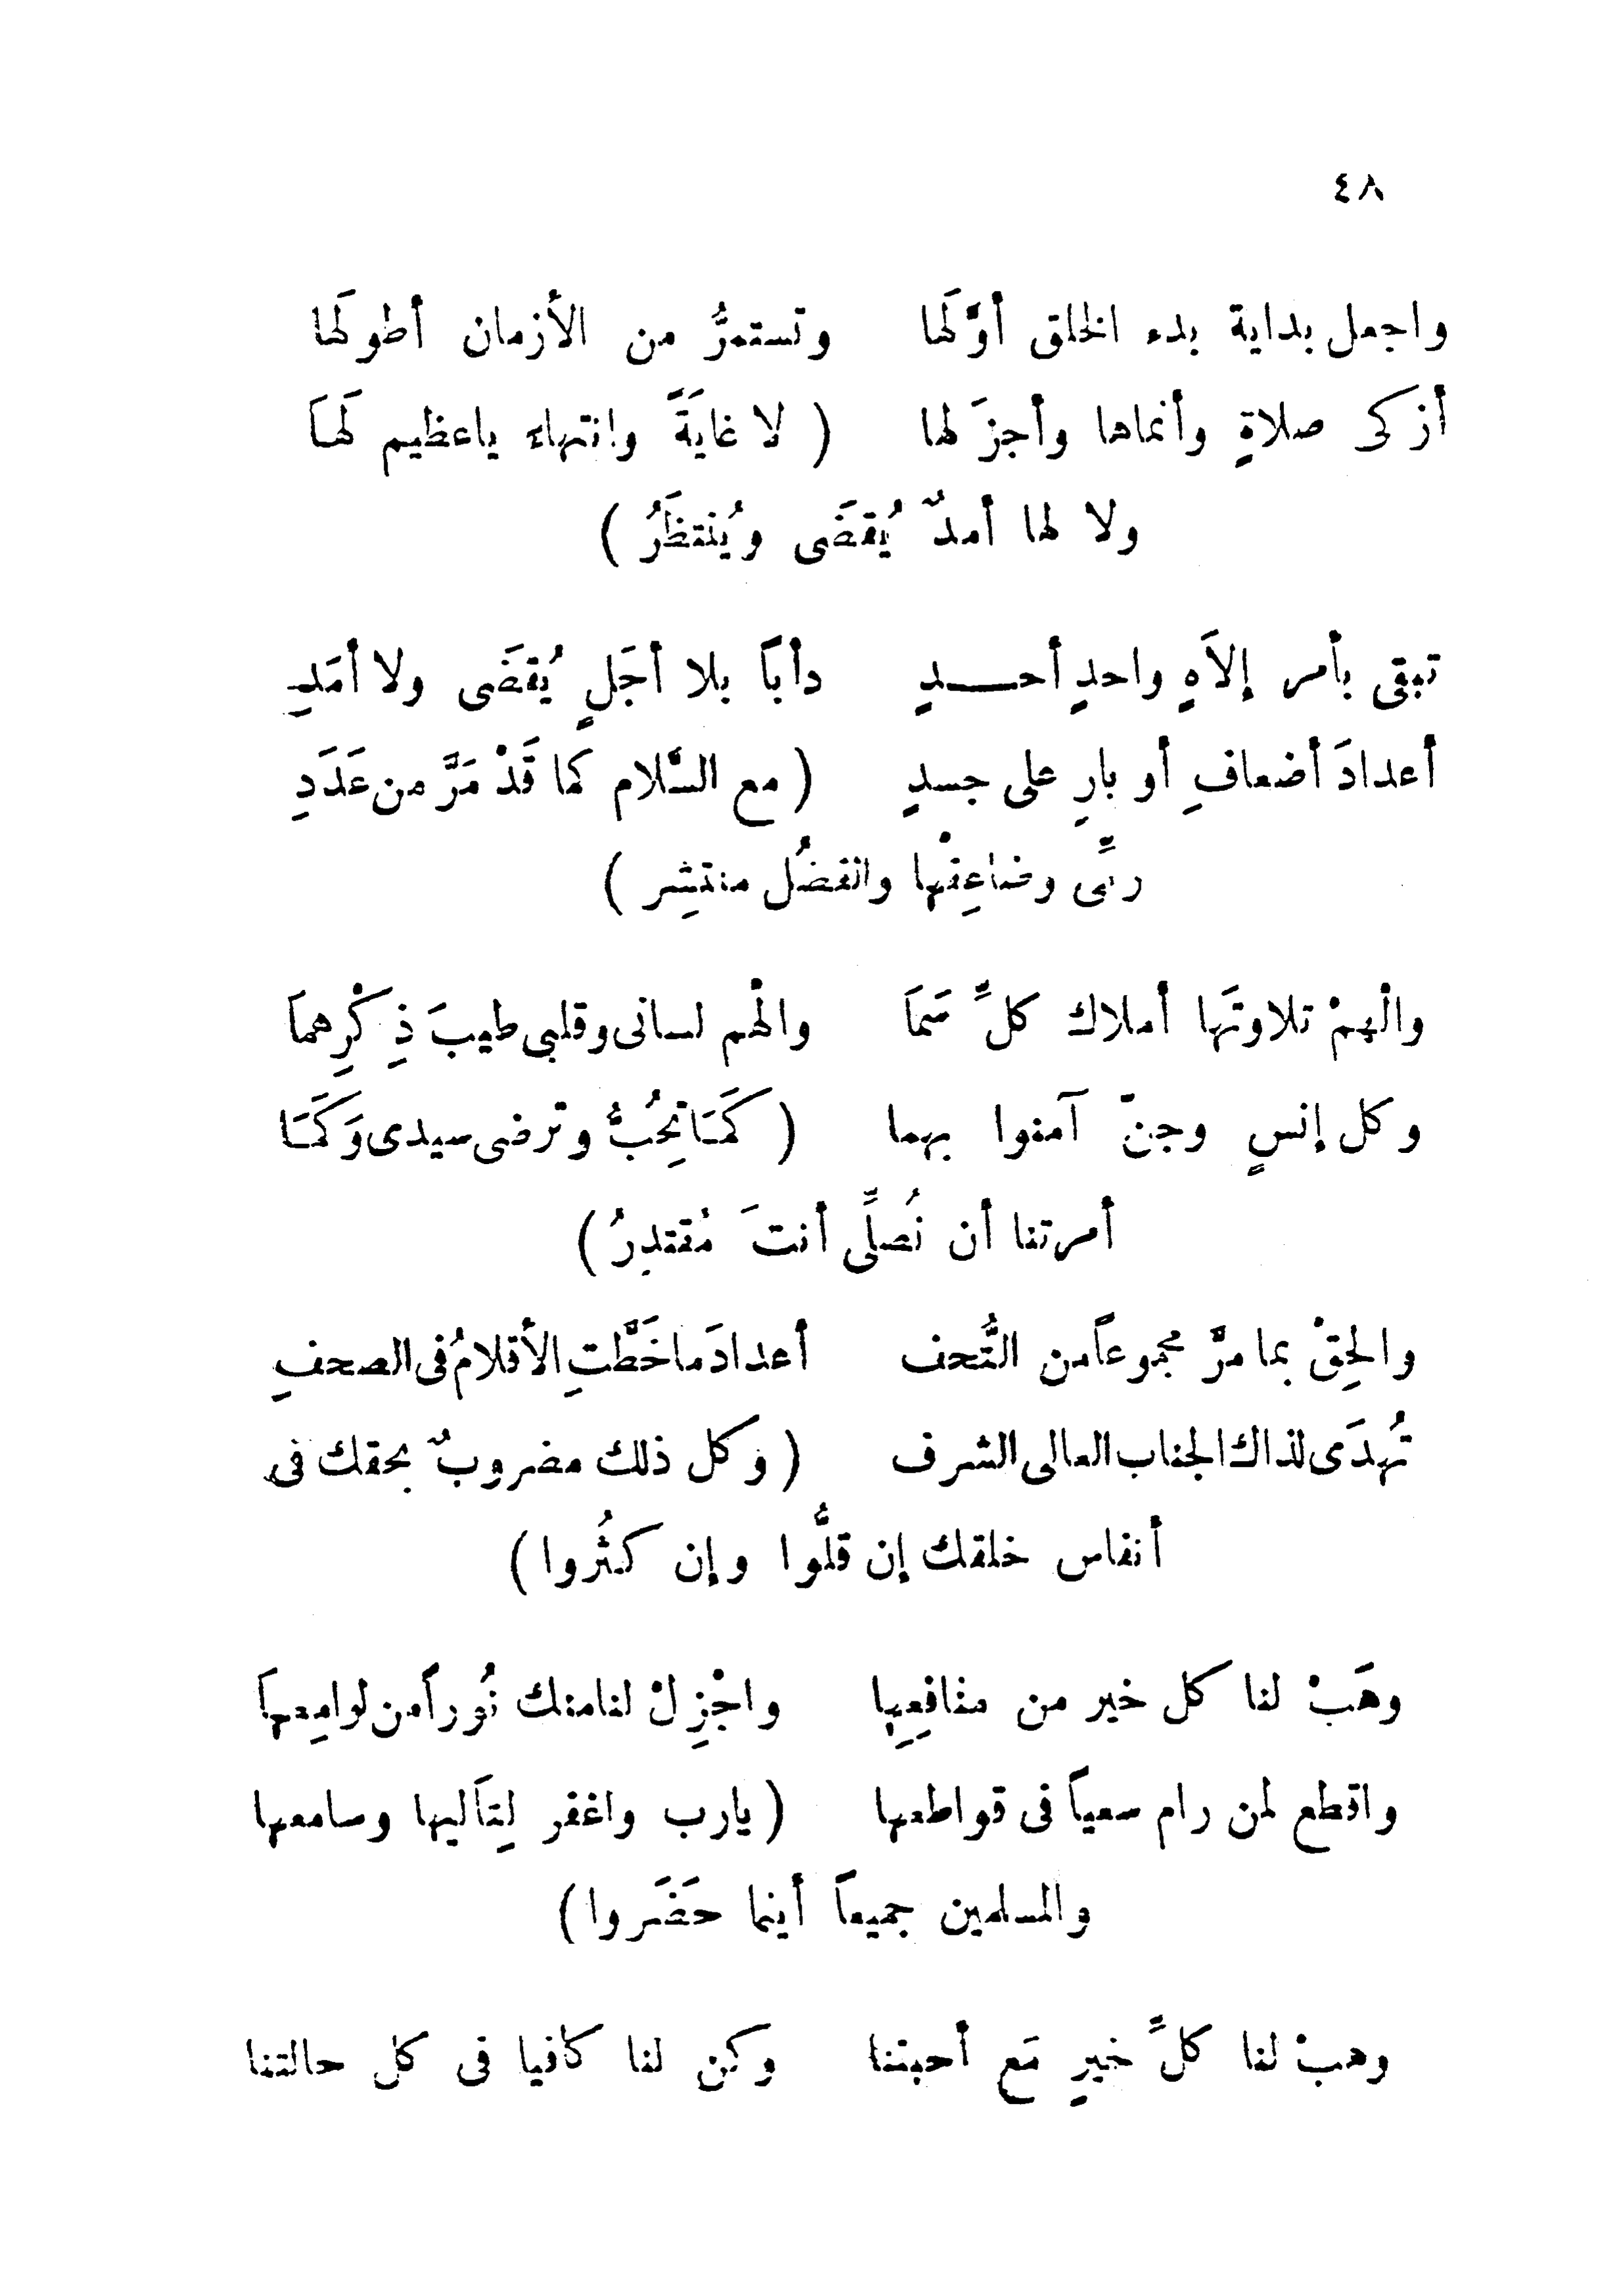 ٤٨
واجعل بداية بدء الخلق أوّلَها وتستمرُّ من الأزمان أطولَها
أزكى صلاةٍ وأنماها وأجزَلها ( لا غايةً وانتهاء ياعظيم لَها
ولا لها أمدٌ يُقضَى ويُنتظَرُ )
تبقى بأمر إلآهٍ واحدٍ أحـــدٍ دأباً بلا أجَلٍ يُقضَى ولا أمَدِ
أعدادَ أضعافِ أوبارٍ على جسدٍ ( مع السّلام كما قَدْ مَرَّ من عَدَدِ
ربِّى وضاعِفْها والفضُل منتشِر )
والْهمْ تلاوتَها أملاك كلِّ سَمَا والْهم لسانى وقلبى طيبَ ذِكْرِهمَا
وكل إنسٍ وجنّ آمنوا بهما ( كَمَا تحِبُّ وترضى سيدى وَكَمَا
أمرتنا أن نُصلِّى أنتَ مُقتدِرُ )
والحِقْ بما مرّ مجموعاً من التُّحف أعدادَ ما خَطَّتِ الأقلامُ فى الصحفِ
تُهدَى لذاك الجناب العالى الشرف ( وكل ذلك مضروبٌ بحقك فى
أنفاس خلقك إن قلُّوا وإن كثُروا )
وهَبْ لنا كل خير من منافِعِها واجْزِلْ لنا منك نُوراً من لوامِعهَا
واقطع لمن رام سعياً فى قواطعها ( يارب واغفر لِتَاليها وسامعها
والمسلمين جميعاً أينما حضَروا )
وهبْ لنا كلِّ خيرٍ مَع أحبتنا وكن لنا كافيا فى كل حالتنا